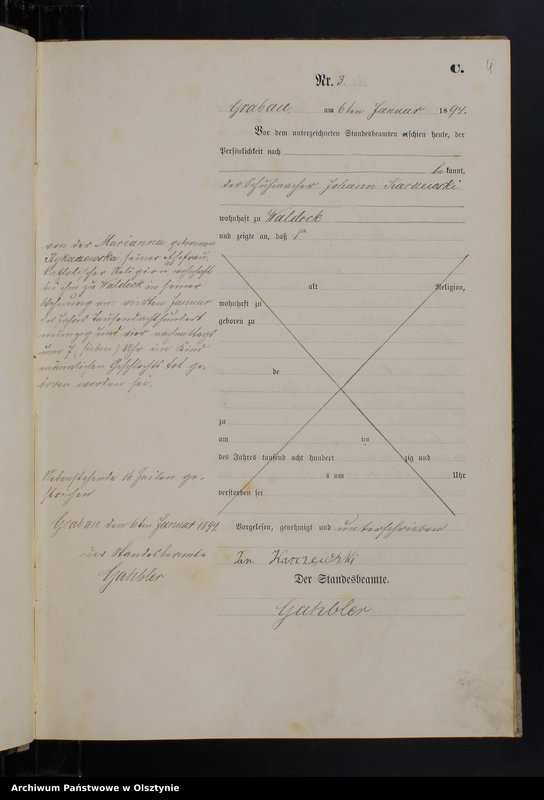 C.
4
Nr. 3.
Grabau am 6ten Januar 1894.
Vor dem unterzeichneten Standesbeamten erschien heute, der
Persönlichkeit nach
bekannt,
der Schuhmacher Johann Karczewski
wohnhaft zu Waldeck
und zeigte an, daß
von der Marianna geborenen
seiner Ehefrau,
katholischer Religion wohnhaft
bei ihm zu Waldeck in seiner
Wohnung am vierten Januar
des Jahres tausend achthundert
neunzig und vier nachmittags
um 7 (sieben) Uhr ein Kind
männlichen Geschlechts tot ge-
boren worden sei.
alt Religion,
wohnhaft zu
geboren zu
de
zu
am ten
des Jahres tausend acht hundert zig und
um Uhr
verstorben sei
Nebenstehende 16 Zeilen ge-
strichen
Grabau den 6ten Januar 1894.
Der Standesbeamte
Gahbler
Vorgelesen, genehmigt und unterschrieben
Jan Karczewski
Der Standesbeamte.
Gahbler
Archiwum Państwowe w Olsztynie